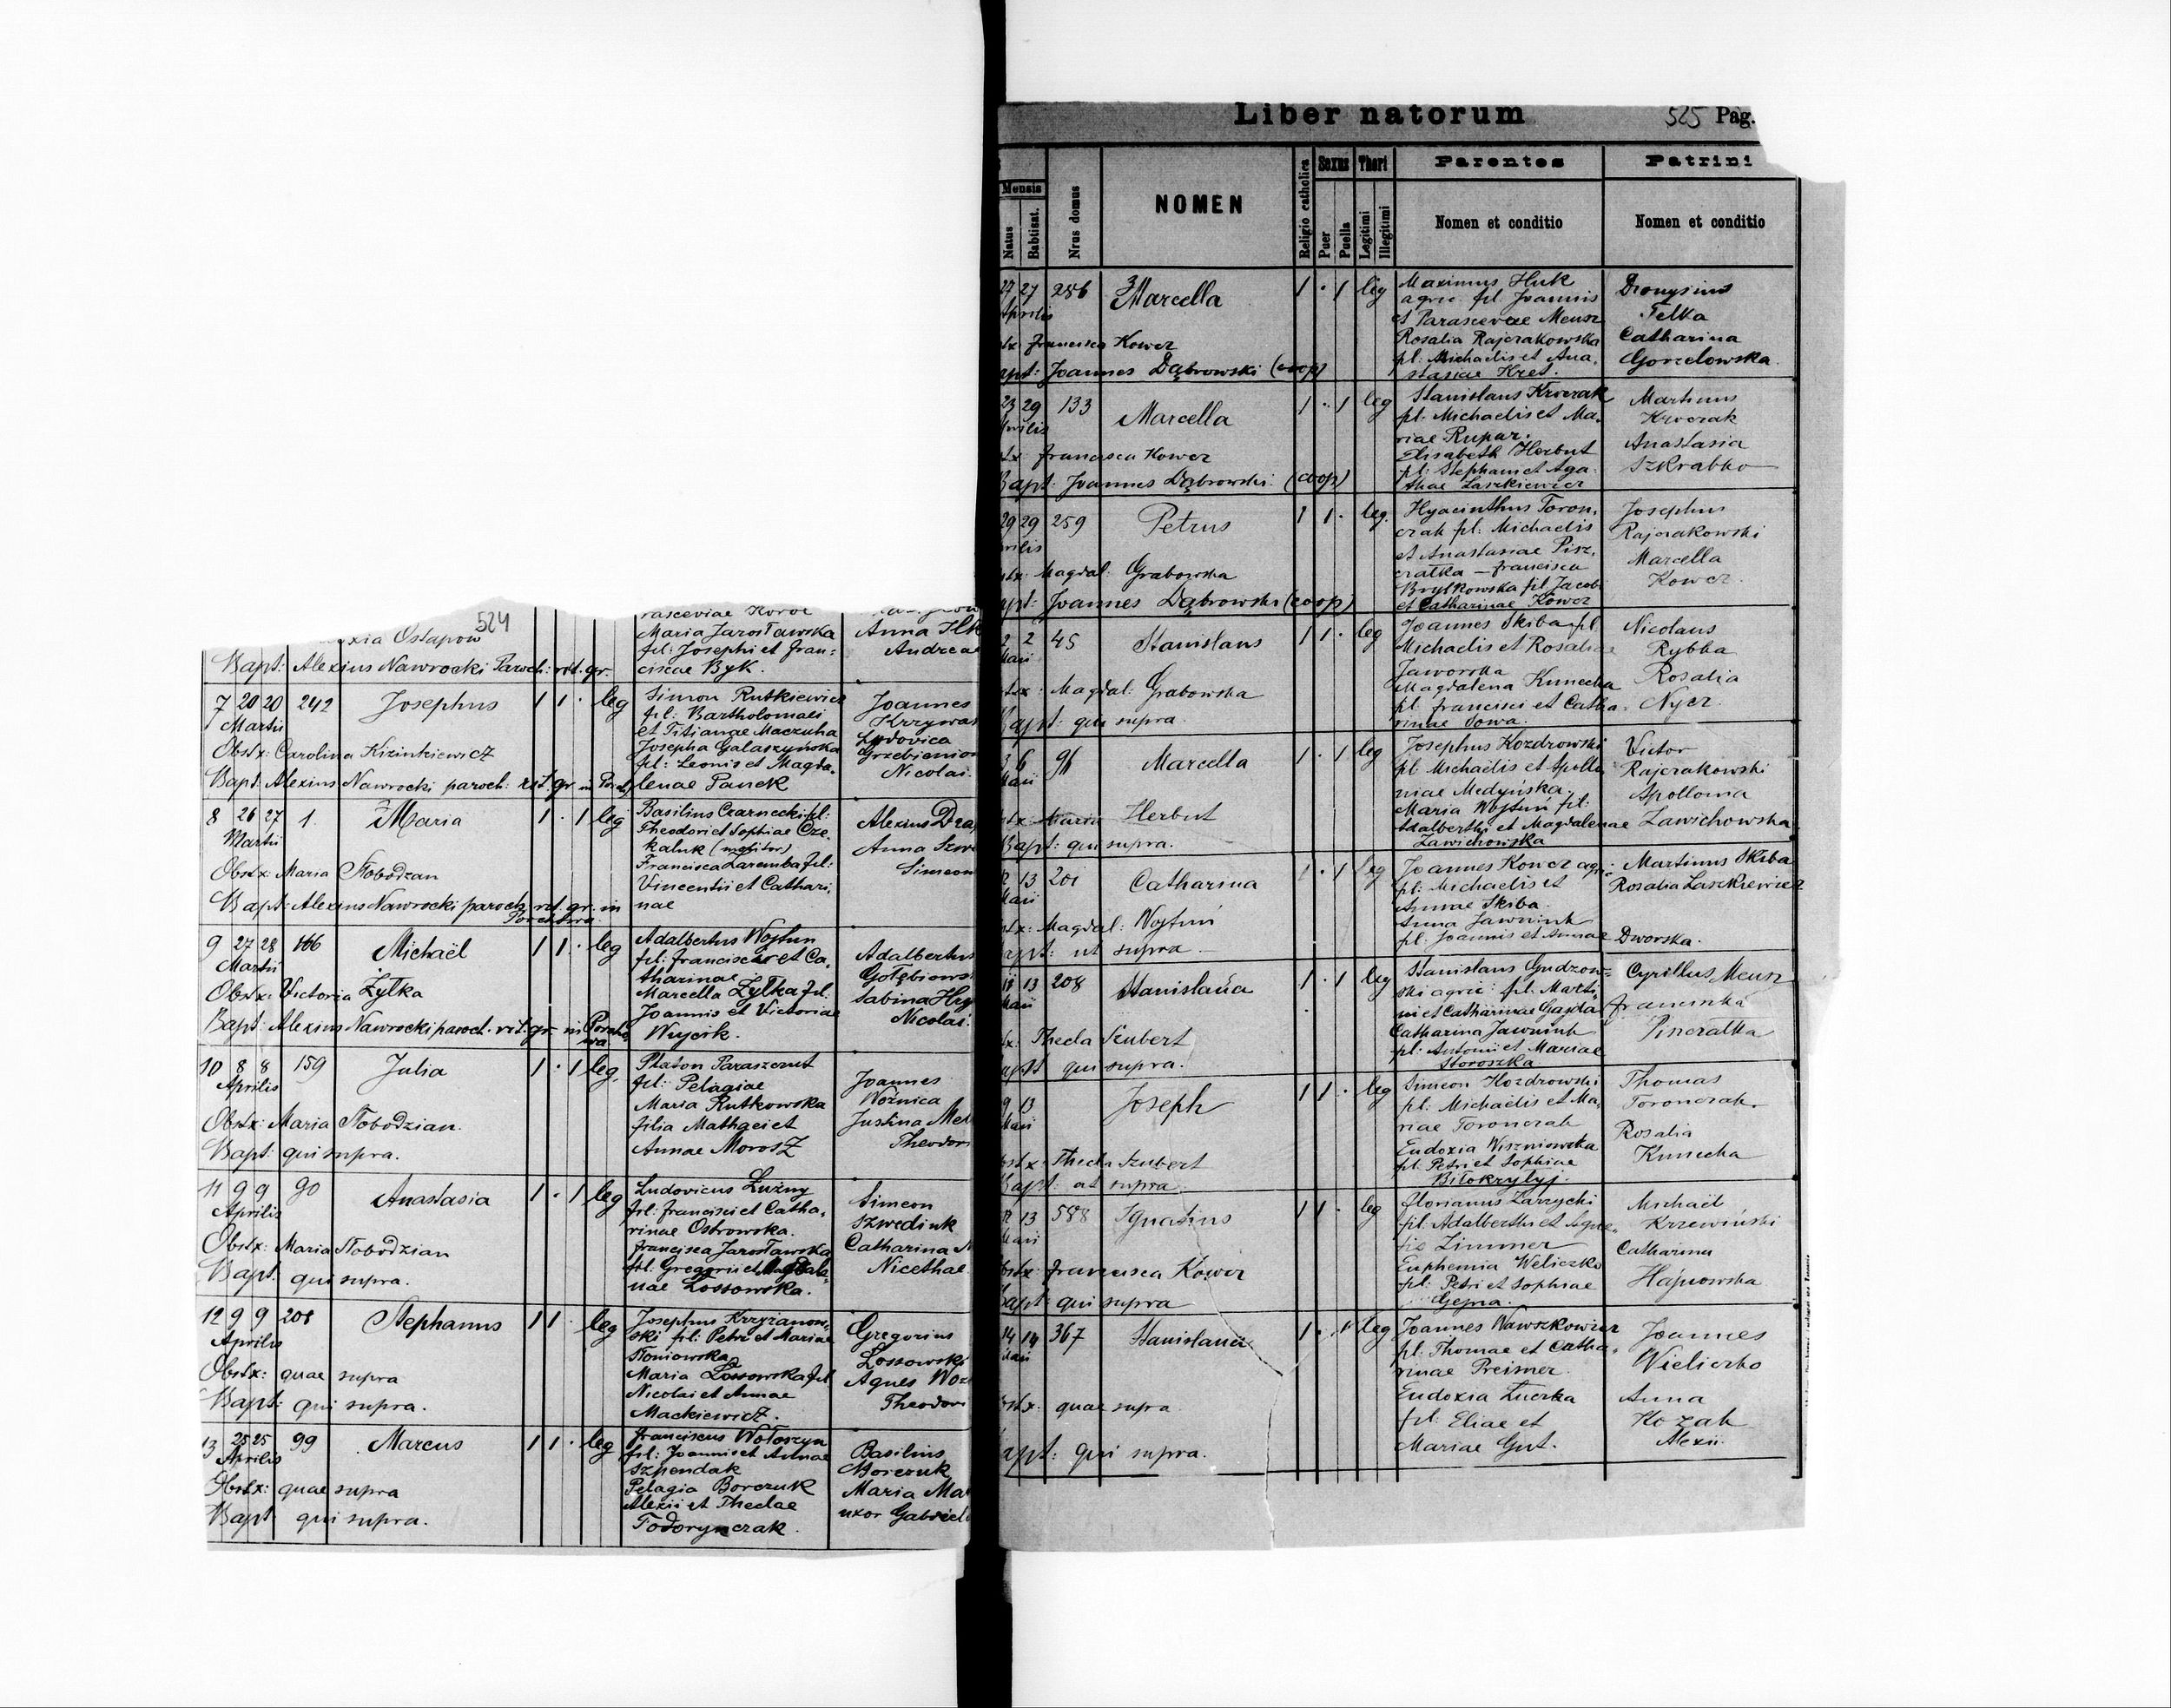 524
rasceviae
Ostapow
Maria Jarosławska
Anna
fil: Josephi et Fran-
Andreae
Bapt: Alexius Nawrocki Paroch: rit. gr.
ciscae Byk.
7 20 20 242 Josephus 1 1 · leg
Martii
Simon Rutkiewicz
fil: Bartholomaei
et Titianae Maczuha
Josepha Galaszyńska
fil: Leonis et Magda-
lenae Panek
Joannes
Ludovica
Nicolai
Obstx: Carolina Kizinkiewicz
Bapt: Alexius Nawrocki paroch: rit. gr. in
8 26 27 1 Maria 1 · 1 leg
Martii
Basilius Czarnecki fil:
Theodori et Sophiae Cze-
kaluk
Francisca Zaremba fil:
Vincentii et Cathari-
nae
Alexius
Anna
Simeon
Obstx: Maria Słobodzan
Bapt: Alexius Nawrocki paroch. rit. gr. in
9 27 28 166 Michaël 1 1 · leg
Martii
Adalbertus Wojtun
fil: Francisci et Ca-
tharinae
Marcella Zytka fil:
Joannis et Victoriae
Wujcik.
Adalbertus
Sabina
Nicolai
Obstx: Victoria Zytka
Bapt: Alexius Nawrocki paroch. rit. gr. in
10 8 8 159 Julia 1 · 1 leg.
Aprilis
Platon Paraszczut
fil: Pelagiae
Maria Rutkowska
filia Mathaei et
Annae Morosz
Joannes
Woźnica
Justina
Theodori
Obstx: Maria Słobodzian.
Bapt: qui supra.
11 9 9 90 Anastasia 1 · 1 leg
Aprilis
Ludovicus Luzny
fil: Francisci et Catha-
rinae Ostrowska.
Francisca Jarosławska
fil: Gregorii et Magdale-
nae Lossowska.
Simeon
Szwediuk
Catharina
Nicethae
Obstx: Maria Słobodzian
Bapt: qui supra.
12 9 9 208 Stephanus 1 1 · leg
Aprilis
Josephus Krzyżanow-
ski fil: Petri et Mariae
Słoniowska
Maria Lossowska fil
Nicolai et Annae
Mackiewicz.
Gregorius
Agnes
Theodori
Obstx: quae supra
Bapt: qui supra.
13 25 25 99 Marcus 1 1 · leg
Aprilis
Franciscus Wołoszyn
fil: Joannis et Annae
Szpondak
Pelagia Borczuk
Alexii et Theclae
Todorynczak.
Basilius
Borczuk
Maria
uxor
Obstx: quae supra
Bapt: qui supra.
Liber natorum 525 Pag.
Mensis
Natus
Babtisat.
Nrus domus
NOMEN
Religio catholica
Sexus
Puer
Puella
Thori
Legitimi
Illegitimi
Parentes
Nomen et conditio
Patrini
Nomen et conditio
27 27 286 Marcella 1 · 1 leg
Aprilis
Maximus Huk
agric. fil. Joannis
et Parascevae Meusz
Rosalia Rajczakowska
fil: Michaelis et Ana-
stasiae Kret.
Dionysius
Felka
Catharina
Gorzelowska
Francisca Kowcz
Joannes Dąbrowski (coop)
23 29 133 Marcella 1 · 1 leg
Stanislaus Krwczak
fil: Michaelis et Ma-
riae Rupar.
Elisabeth Herbut
fil: Stephani et Aga-
thae Laszkiewicz
Martinus
Krwczak
Anastasia
Szkrabko
Francisca Kowcz
Bapt: Joannes Dąbrowski. (coop)
29 29 259 Petrus 1 1 · leg.
Hyacinthus Toron-
czak fil: Michaelis
et Anastasiae Pisz-
czatka — Francisca
Brylkowska fil. Jacobi
et Catharinae Kowcz
Josephus
Rajczakowski
Marcella
Kowcz.
Magdal: Grabowska
Joannes Dąbrowski (coop)
2 2 45 Stanislaus 1 1 · leg
Joannes Skiba fil.
Michaelis et Rosaliae
Jaworska
Magdalena Kunecka
fil. Francisci et Catha-
rinae Sowa.
Nicolaus
Rybka
Rosalia
Nycz.
Magdal: Grabowska
Bapt: qui supra.
3 6 96 Marcella 1 · 1 leg
Josephus Kozdrowski
fil. Michaelis et Apollo-
niae Medyńska.
Maria Wojtuń fil:
Adalberthi et Magdalenae
Zawichowska
Victor
Rajczakowski
Apollonia
Zawichowska
Herbut
Bapt: qui supra.
12 13 201 Catharina 1 · 1 leg
Joannes Kowcz agr:
fil: Michaelis et
Annae Skiba.
Anna Jawniuk
fil: Joannis et Annae
Dworska.
Martinus Skiba
Rosalia Laszkiewicz
Magdal: Wojtuń
Bapt: ut supra.
13 208 Stanislava 1 · 1 leg
Stanislaus Gudzow-
ski agric: fil: Marti-
ni et Catharinae Gajda
Catharina Jawniuk
fil: Antonii et Mariae
Storoszka
Cyrillus Meusz
Thecla Szubert
qui supra.
9 13 Joseph 1 1 · leg
Simeon Kozdrowski
fil: Michaelis et Ma-
riae Toronczak
Eudoxia Wiszniowska
fil: Petri et Sophiae
Biłokrylyj.
Thomas
Toronczak.
Rosalia
Kunecka
Thecla Szubert
Bapt: ut supra.
12 13 588 Ignatius 1 1 · leg
Florianus Zarzycki
fil: Adalberthi et Agne-
tis Zimmer
Euphemia Weliczko
fil: Petri et Sophiae
Michaël
Krzewiński
Catharina
Hajnowska
Francisca Kowcz
Bapt: qui supra
14 14 367 Stanislaua 1 · 1 leg
Joannes Nawszkowicz
fil: Thomae et Catha-
rinae Preisner.
Eudoxia Łuczka
fil: Eliae et
Mariae Gut.
Joannes
Wieliczko
Anna
Kozak
Alexii.
quae supra.
Bapt: qui supra.